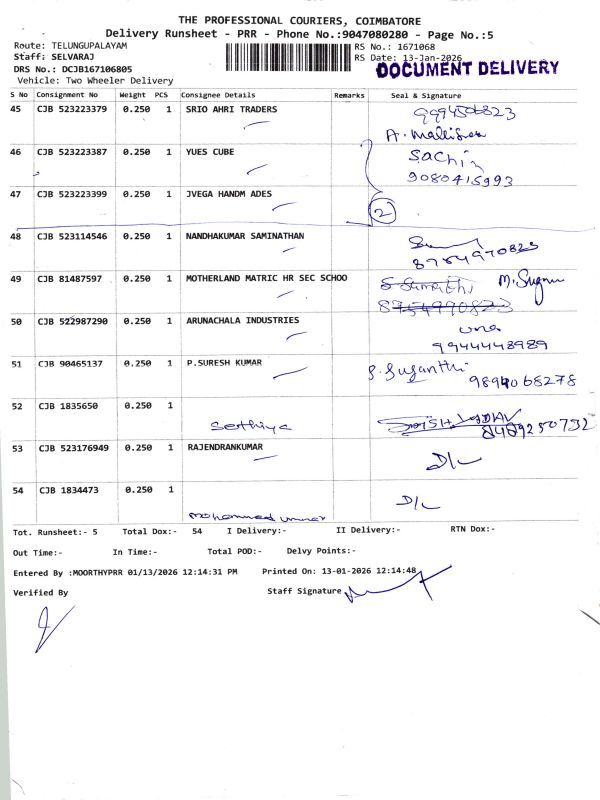 THE PROFESSIONAL COURIERS, COIMBATORE
Delivery Runsheet - PRR - Phone No.:9047080280 - Page No.:5
Route: TELUNGUPALAYAM
RS No.: 1671068
Staff: SELVARAJ
RS Date: 13-Jan-2026
DRS No.: DCJB167106805
DOCUMENT DELIVERY
Vehicle: Two Wheeler Delivery
S No Consignment No Weight PCS Consignee Details Remarks Seal & Signature
45 CJB 523223379 0.250 1 SRIO AHRI TRADERS
46 CJB 523223387 0.250 1 YUES CUBE Sachin
9080415993
47 CJB 523223399 0.250 1 JVEGA HANDM ADES
2
48 CJB 523114546 0.250 1 NANDHAKUMAR SAMINATHAN
49 CJB 81487597 0.250 1 MOTHERLAND MATRIC HR SEC SCHOO
50 CJB 522987290 0.250 1 ARUNACHALA INDUSTRIES
9944448989
51 CJB 90465137 0.250 1 P.SURESH KUMAR S. Suganthi
9894068278
52 CJB 1835650 0.250 1
Sethiya
8489250732
53 CJB 523176949 0.250 1 RAJENDRANKUMAR D/L
54 CJB 1834473 0.250 1 D/L
Mohammed ummar
Tot. Runsheet:- 5 Total Dox:- 54 I Delivery:- II Delivery:- RTN Dox:-
Out Time:- In Time:- Total POD:- Delvy Points:-
Entered By :MOORTHYPRR 01/13/2026 12:14:31 PM Printed On: 13-01-2026 12:14:48
Verified By Staff Signature